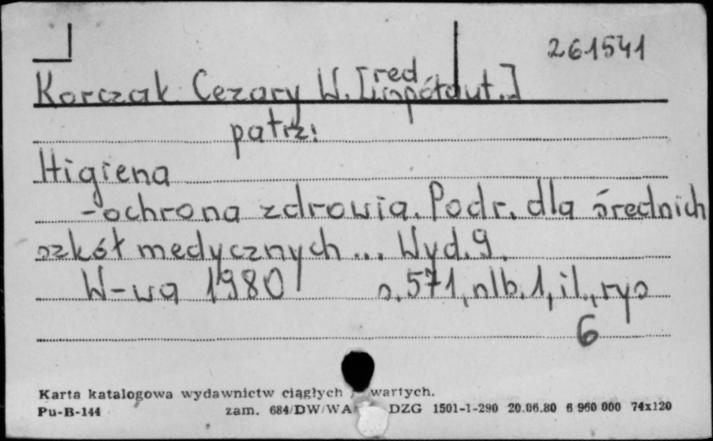 261541
Korczak Cezary W. [red
współaut.]
patrz:
Higiena
-ochrona zdrowia. Podr. dla średnich
szkół medycznych ... Wyd. 9.
W-wa 1980 s. 571, nlb. 1, il., rys
6
Karta katalogowa wydawnictw ciągłych i zwartych.
Pu-B-144 zam. 684/DW/WA DZG 1501-1-290 20.06.80 6 960 000 74x120